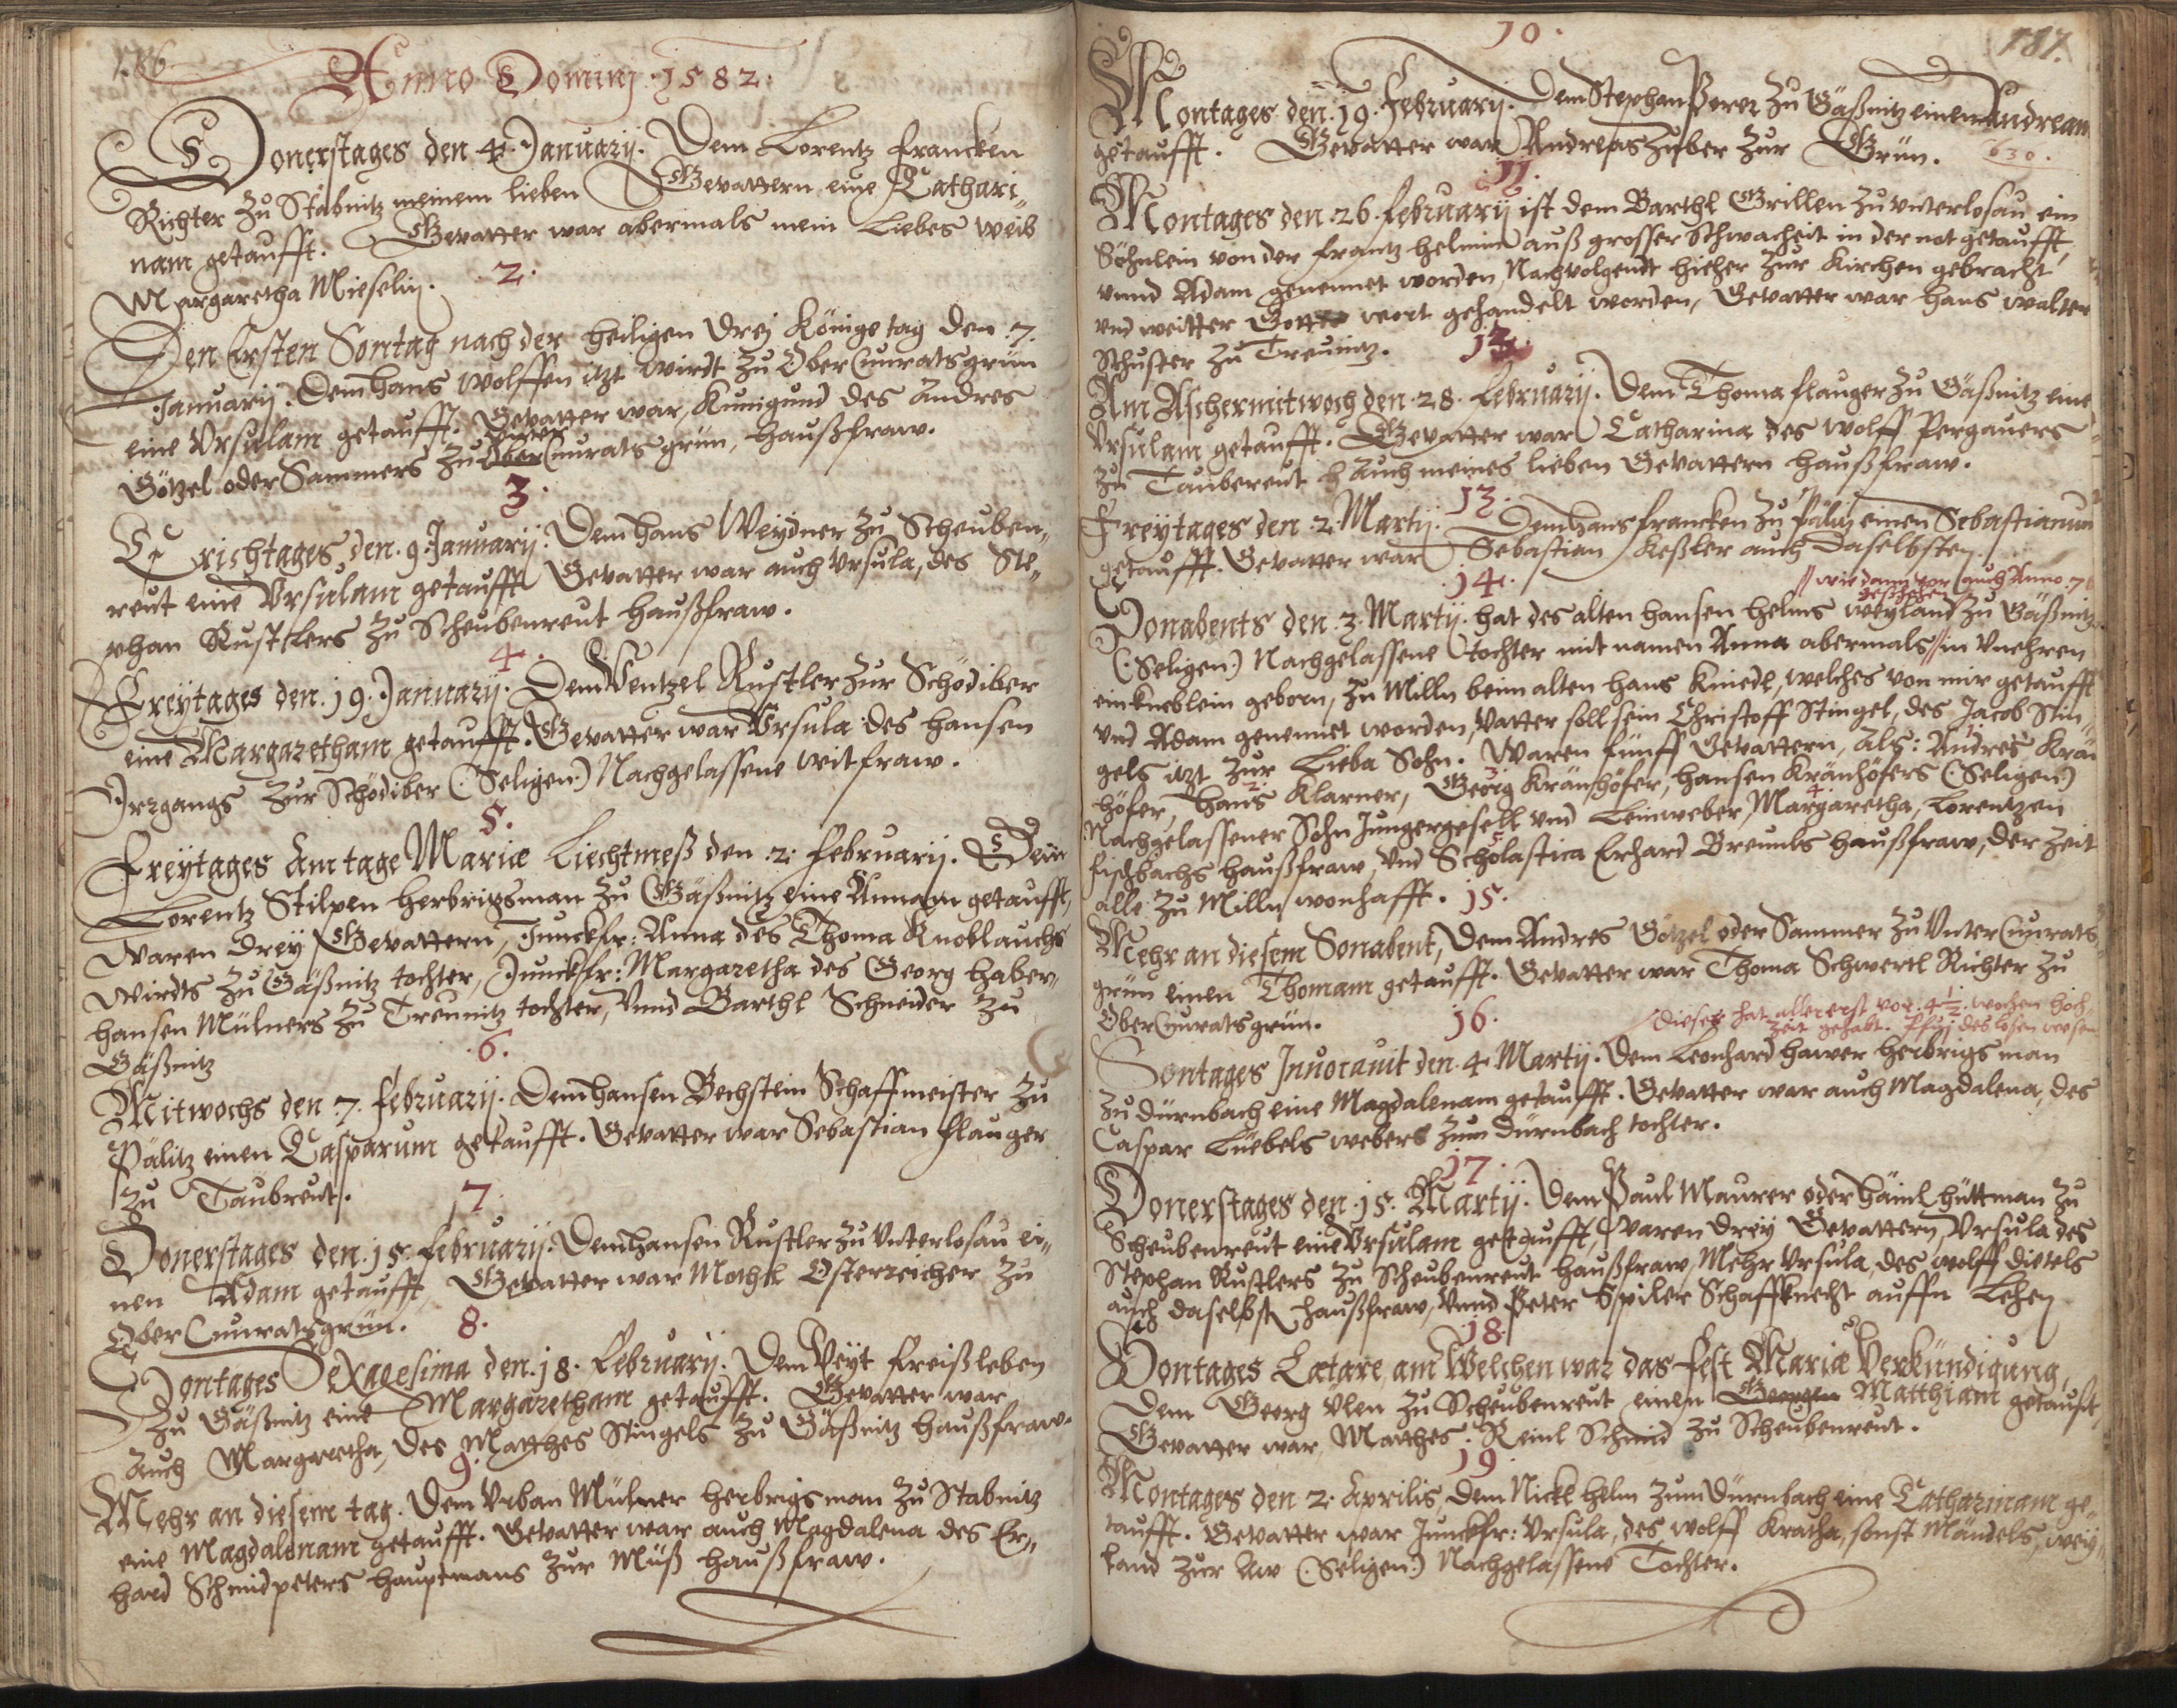 186.
Anno Dominj 1582.
Donerstages den 4. Januarij. Dem Lorentz Francken
Richter zu Stabnitz meinem lieben Gevattern eine Cathari-
nam getaufft. Gevatter war abermals mein Liebes weib
Margaretha Mieselin.
2.
Den Ersten Sontag nach der heiligen Drej Könige tag den 7.
Januarij. Dem Hans Wolffen itzt wirdt zu Ober Cunratsgrün
eine Vrsulam getaufft. Gevatter war, Kunigund des Andres
Götzel oder Sammers zu Ober Unter Cunratsgrün, haußfraw.
3.
Erichtages den 9. Januarij. Dem Hans Weydner zu Scheuben-
reut eine Vrsulam getaufft Gevatter war auch Vrsula, des Ste-
phan Rustlers zu Scheubenreut haußfraw.
4.
Freytages den 19. Januarij. Dem Wentzel Rustler zur Schödiber
eine Margaretham getaufft. Gevatter war Vrsula des Hansen
Irrgangs zur Schödiber (:Seligen:) Nachgelassene witfraw.
5.
Freytages Am tage Mariæ Liechtmeß den 2. Februarij. Dem
Lorentz Stilpen herbrigsman zu Gäßnitz eine Annam getaufft,
Waren drey Gevattern, Junckfr: Anna des Thoma Knoblauchs
Wirdts zu Gäßnitz tochter, Junckfr: Margaretha des Georg Haber-
hansen Mülners zu Treunitz tochter, Vnnd Barthl Schneider zu
Gäßnitz
6.
Mitwochs den 7. Februarij. Dem Hansen Bechstein Schaffmeister zu
Pälitz einen Casparum getaufft. Gevatter war Sebastian Flauger
zu Taubreut.
7.
Donerstages den 15. Februarij. Dem Hansen Rustler zu Vnterlosau ei-
nen Adam getaufft, Gevatter war Mothl Österreicher zu
Ober Cunratsgrün.
8.
Sontages Sexagesima den 18. Februarij. Dem Veyt Freißleben
zu Gäßnitz eine Margaretham getaufft. Gevatter war
auch Margaretha, des Matthes Stingels zu Gäßnitz haußfraw.
9.
Mehr an diesem tag. Dem Vrban Mülner herbrigsman zu Stabnitz
eine Magdalenam getaufft. Gevatter war auch Magdalena des Er-
hard Schmidpeters hauptmans zur Müß haußfraw.
187.
10.
Montages den 19. Februarij. Dem Stephan Perer zu Gäßnitz einen Andream
getaufft. Gevatter war Andreas Zuber zur Grün. 630.
11.
Montages den 26. Februarij ist dem Barthl Grillen zu Vnterlosau ein
Söhnlein von der Frantz Helmin auß grosser Schwacheit in der not getaufft,
vnnd Adam genennet worden, Nachvolgendt hieher zur Kirchen gebracht
vnd weitter Gottes wort gehandelt worden, Gevatter war Hans Walter
Schuster zu Treunitz.
12.
Am Aschermitwoch den 28. Februarij. Dem Thoma Flauger zu Gäßnitz eine
Vrsulam getaufft. Gevatter war Catharina des Wolff Pergauers
zu Tauberent auch meines lieben Gevattern haußfraw.
13.
Freytages den 2. Martij. Dem Hans Francken zu Pälitz einen Sebastianum
getaufft. Gevatter war Sebastian Keßler auch Daselbsten.
14.
// wie dann vor auch Anno 7
geschehen
Sonabents den 3. Martij. hat des alten Hansen Helms weyland zu Gäßnitz
(:Seligen:) Nachgelassene tochter mit namen Anna abermals // in Vnehren
ein kneblein geborn, zu Milln beim alten Hans Kniedl, welches von mir getaufft
vnd Adam genennet worden, Vatter soll sein Christoff Stingel, des Jacob Stin-
gels itzt zur Lieba Sohn. Waren fünff Gevattern, Als: Andres Krän
höfer, Hans Klarner, Georg Kränhöfer, Hansen Kränhöfers (:Seligen:)
Nachgelassener Sohn Jungergesell vnd Leinweber, Margaretha, Lorentzen
Fischbachs haußfraw, Vnd Scholastica Erhard Breunls haußfraw, der Zeit
alle zu Milln wonhafft.
15.
Mehr an diesem Sonabent, Dem Andres Götzel oder Sammer zu Vnter Cunrats-
grün einen Thomam getaufft. Gevatter war Thoma Schwertl Richter zu
Ober Cunratsgrün.
16.
Dieser hat allererst vor 4 1/2 wochen hoch-
zeit gehabt. Pfuj des losen wesen
Sontages Inuocauit den 4. Martij. Dem Leonhard Hawer herbrigsman
zu Dürnbach eine Magdalenam getaufft. Gevatter war auch Magdalena, des
Caspar Lüebels webers zum Dürnbach tochter.
17.
Donerstages den 15. Martij. Dem Paul Maurer oder Häml hüttman zu
Scheubenreut eine Vrsulam getaufft, Waren drey Gevattern, Vrsula des
Stephan Rustlers zu Scheubenreut haußfraw, Mehr Vrsula, des Wolff Dietels
auch daselbst haußfraw, Vnnd Peter Spiler Schaffknecht auffn Lehen
18.
Sontages Lætare, am Welchen war das Fest Mariæ Verkündigung,
Dem Georg Vlen zu Scheubenreut einen Georgen Matthiam getaufft,
Gevatter war Matthes Reinl Schmid zu Scheubenreut.
19.
Montages den 2. Aprilis, Dem Nickl Helm zum Dürnbach eine Catharinam ge-
taufft. Gevatter war Junckfr: Vrsula, des Wolff Kracha, sonst Mändels, wey-
land zur Aw (:Seligen:) Nachgelassene Tochter.